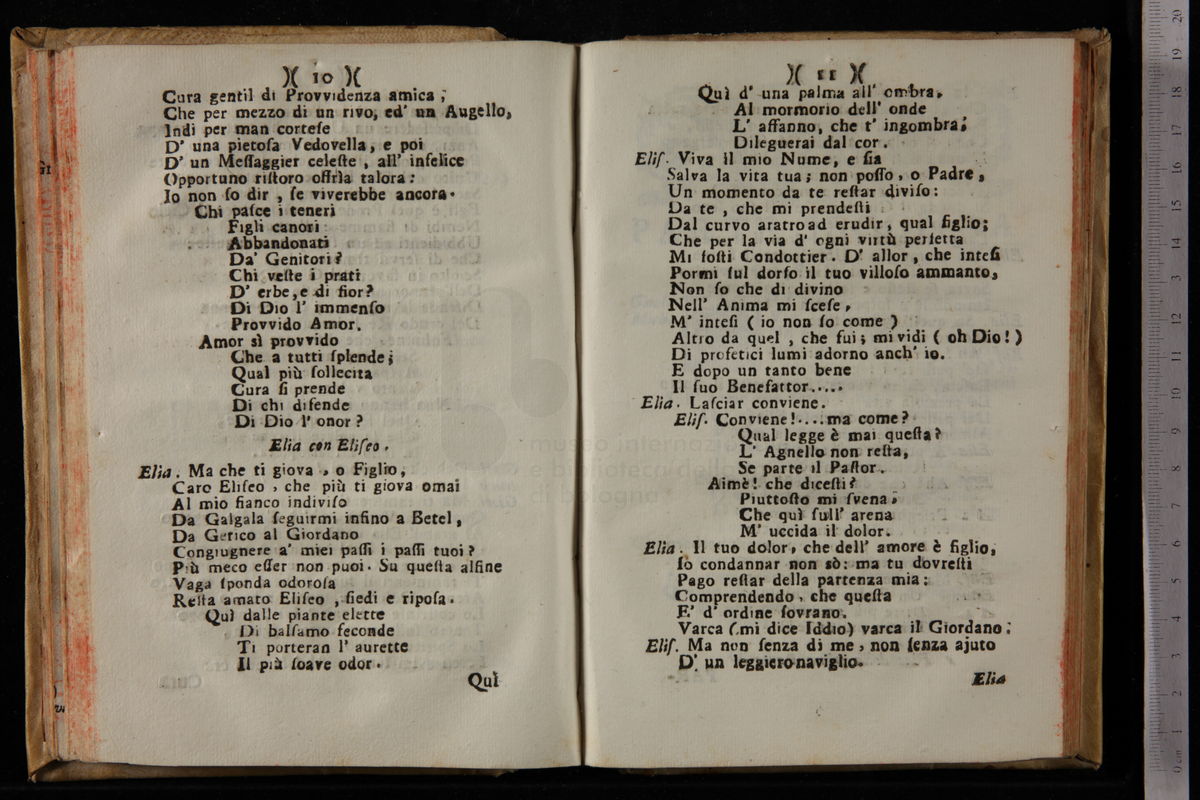 )( 10 )(
Cura gentil di Provvidenza amica;
Che per mezzo di un rivo, ed' un Augello,
Indi per man corteſe
D' una pietoſa Vedovella, e poi
D' un Meſſaggier celeſte, all' infelice
Opportuno riſtoro offrìa talora:
Io non ſo dir, ſe viverebbe ancora.
Chi paſce i teneri
Figli canori
Abbandonati
Da' Genitori?
Chi veſte i prati
D' erbe, e di fior?
Di Dio l' immenſo
Provvido Amor.
Amor sì provvido
Che a tutti ſplende;
Qual più ſollecita
Cura ſi prende
Di chi difende
Di Dio l' onor?
Elia con Eliſeo.
Elia. Ma che ti giova, o Figlio,
Caro Eliſeo, che più ti giova omai
Al mio fianco indiviſo
Da Galgala ſeguirmi infino a Betel,
Da Gerico al Giordano
Congiugnere a' miei paſſi i paſſi tuoi?
Più meco eſſer non puoi. Su queſta alfine
Vaga ſponda odoroſa
Reſta amato Eliſeo, ſiedi e ripoſa.
Quì dalle piante elette
Di balſamo feconde
Ti porteran l' aurette
Il più ſoave odor.
Quì
)( 11 )(
Quì d' una palma all' ombra,
Al mormorio dell' onde
L' affanno, che t' ingombra,
Dileguerai dal cor.
Eliſ. Viva il mio Nume, e ſia
Salva la vita tua; non poſſo, o Padre,
Un momento da te reſtar diviſo:
Da te, che mi prendeſti
Dal curvo aratro ad erudir, qual figlio;
Che per la via d' ogni virtù perfetta
Mi foſti Condottier. D' allor, che inteſi
Pormi ſul dorſo il tuo villoſo ammanto,
Non ſo che di divino
Nell' Anima mi ſceſe,
M' inteſi ( io non ſo come )
Altro da quel, che fui; mi vidi ( oh Dio! )
Di profetici lumi adorno anch' io.
E dopo un tanto bene
Il ſuo Benefattor.....
Elia. Laſciar conviene.
Eliſ. Conviene!....ma come?
Qual legge è mai queſta?
L' Agnello non reſta,
Se parte il Paſtor.
Aimè! che diceſti?
Piuttoſto mi ſvena;
Che quì ſull' arena
M' uccida il dolor.
Elia. Il tuo dolor, che dell' amore è figlio,
Io condannar non sò: ma tu dovreſti
Pago reſtar della partenza mia:
Comprendendo, che queſta
E' d' ordine ſovrano.
Varca ( mi dice Iddio) varca il Giordano:
Eliſ. Ma non ſenza di me, non ſenza ajuto
D' un leggiero naviglio.
Elia